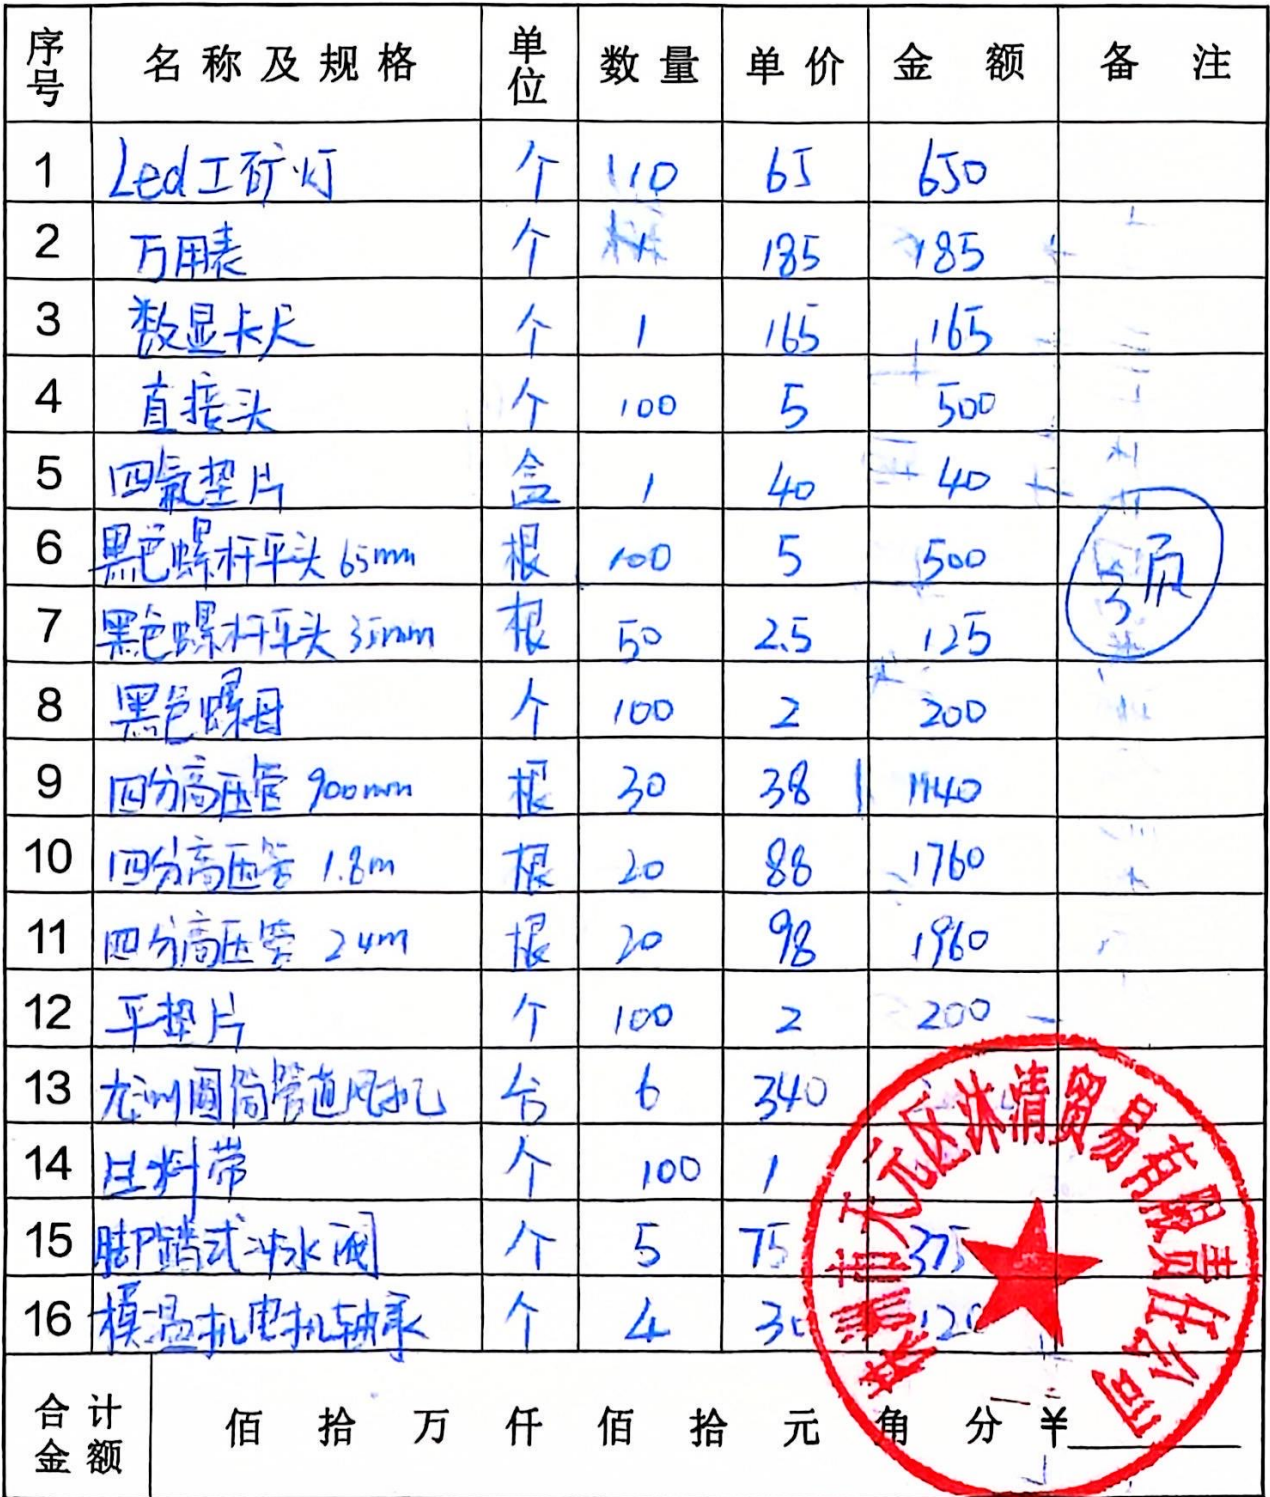 序号 名称及规格 单位 数量 单价 金额 备注
1 Led工矿灯 个 110 65 650
2 万用表 个 185 185
3 数显卡尺 个 1 165 165
4 直接头 个 100 5 500
5 四氟垫片 盒 1 40 40
6 黑色螺杆平头 65mm 根 100 5 500
7 黑色螺杆平头 35mm 根 50 2.5 125
8 黑色螺母 个 100 2 200
9 四分高压管 900mm 根 30 38 1140
10 四分高压管 1.8m 根 20 88 1760
11 四分高压管 24m 根 20 98 1960
12 平垫片 个 100 2 200
13 圆筒管道风机 台 6 340
14 生料带 个 100 1
15 脚踏式冲水阀 个 5 75 375
16 模温机电机轴承 个 4 30 120
合计金额 佰 拾 万 仟 佰 拾 元 角 分 ¥
市天元区沐清贸易有限责任公司